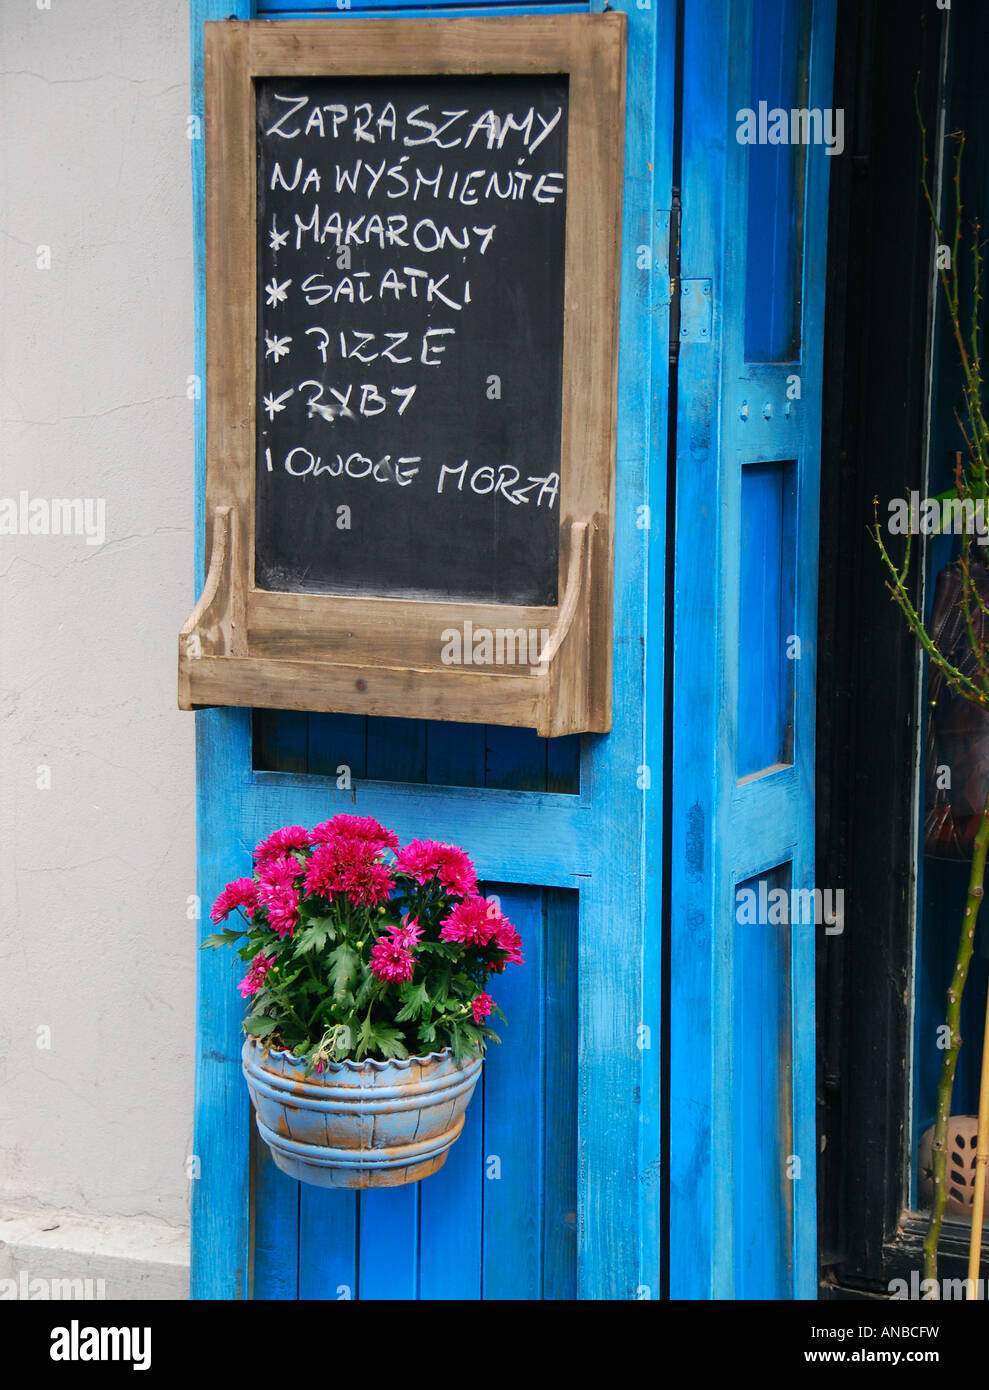 ZAPRASZAMY
NA WYŚMIENITE
* MAKARONY
* SAŁATKI
* PIZZE
* RYBY
I OWOCE MORZA
alamy
alamy
alamy
alamy
alamy
alamy stock photo
Image ID: ANBCFW
www.alamy.com